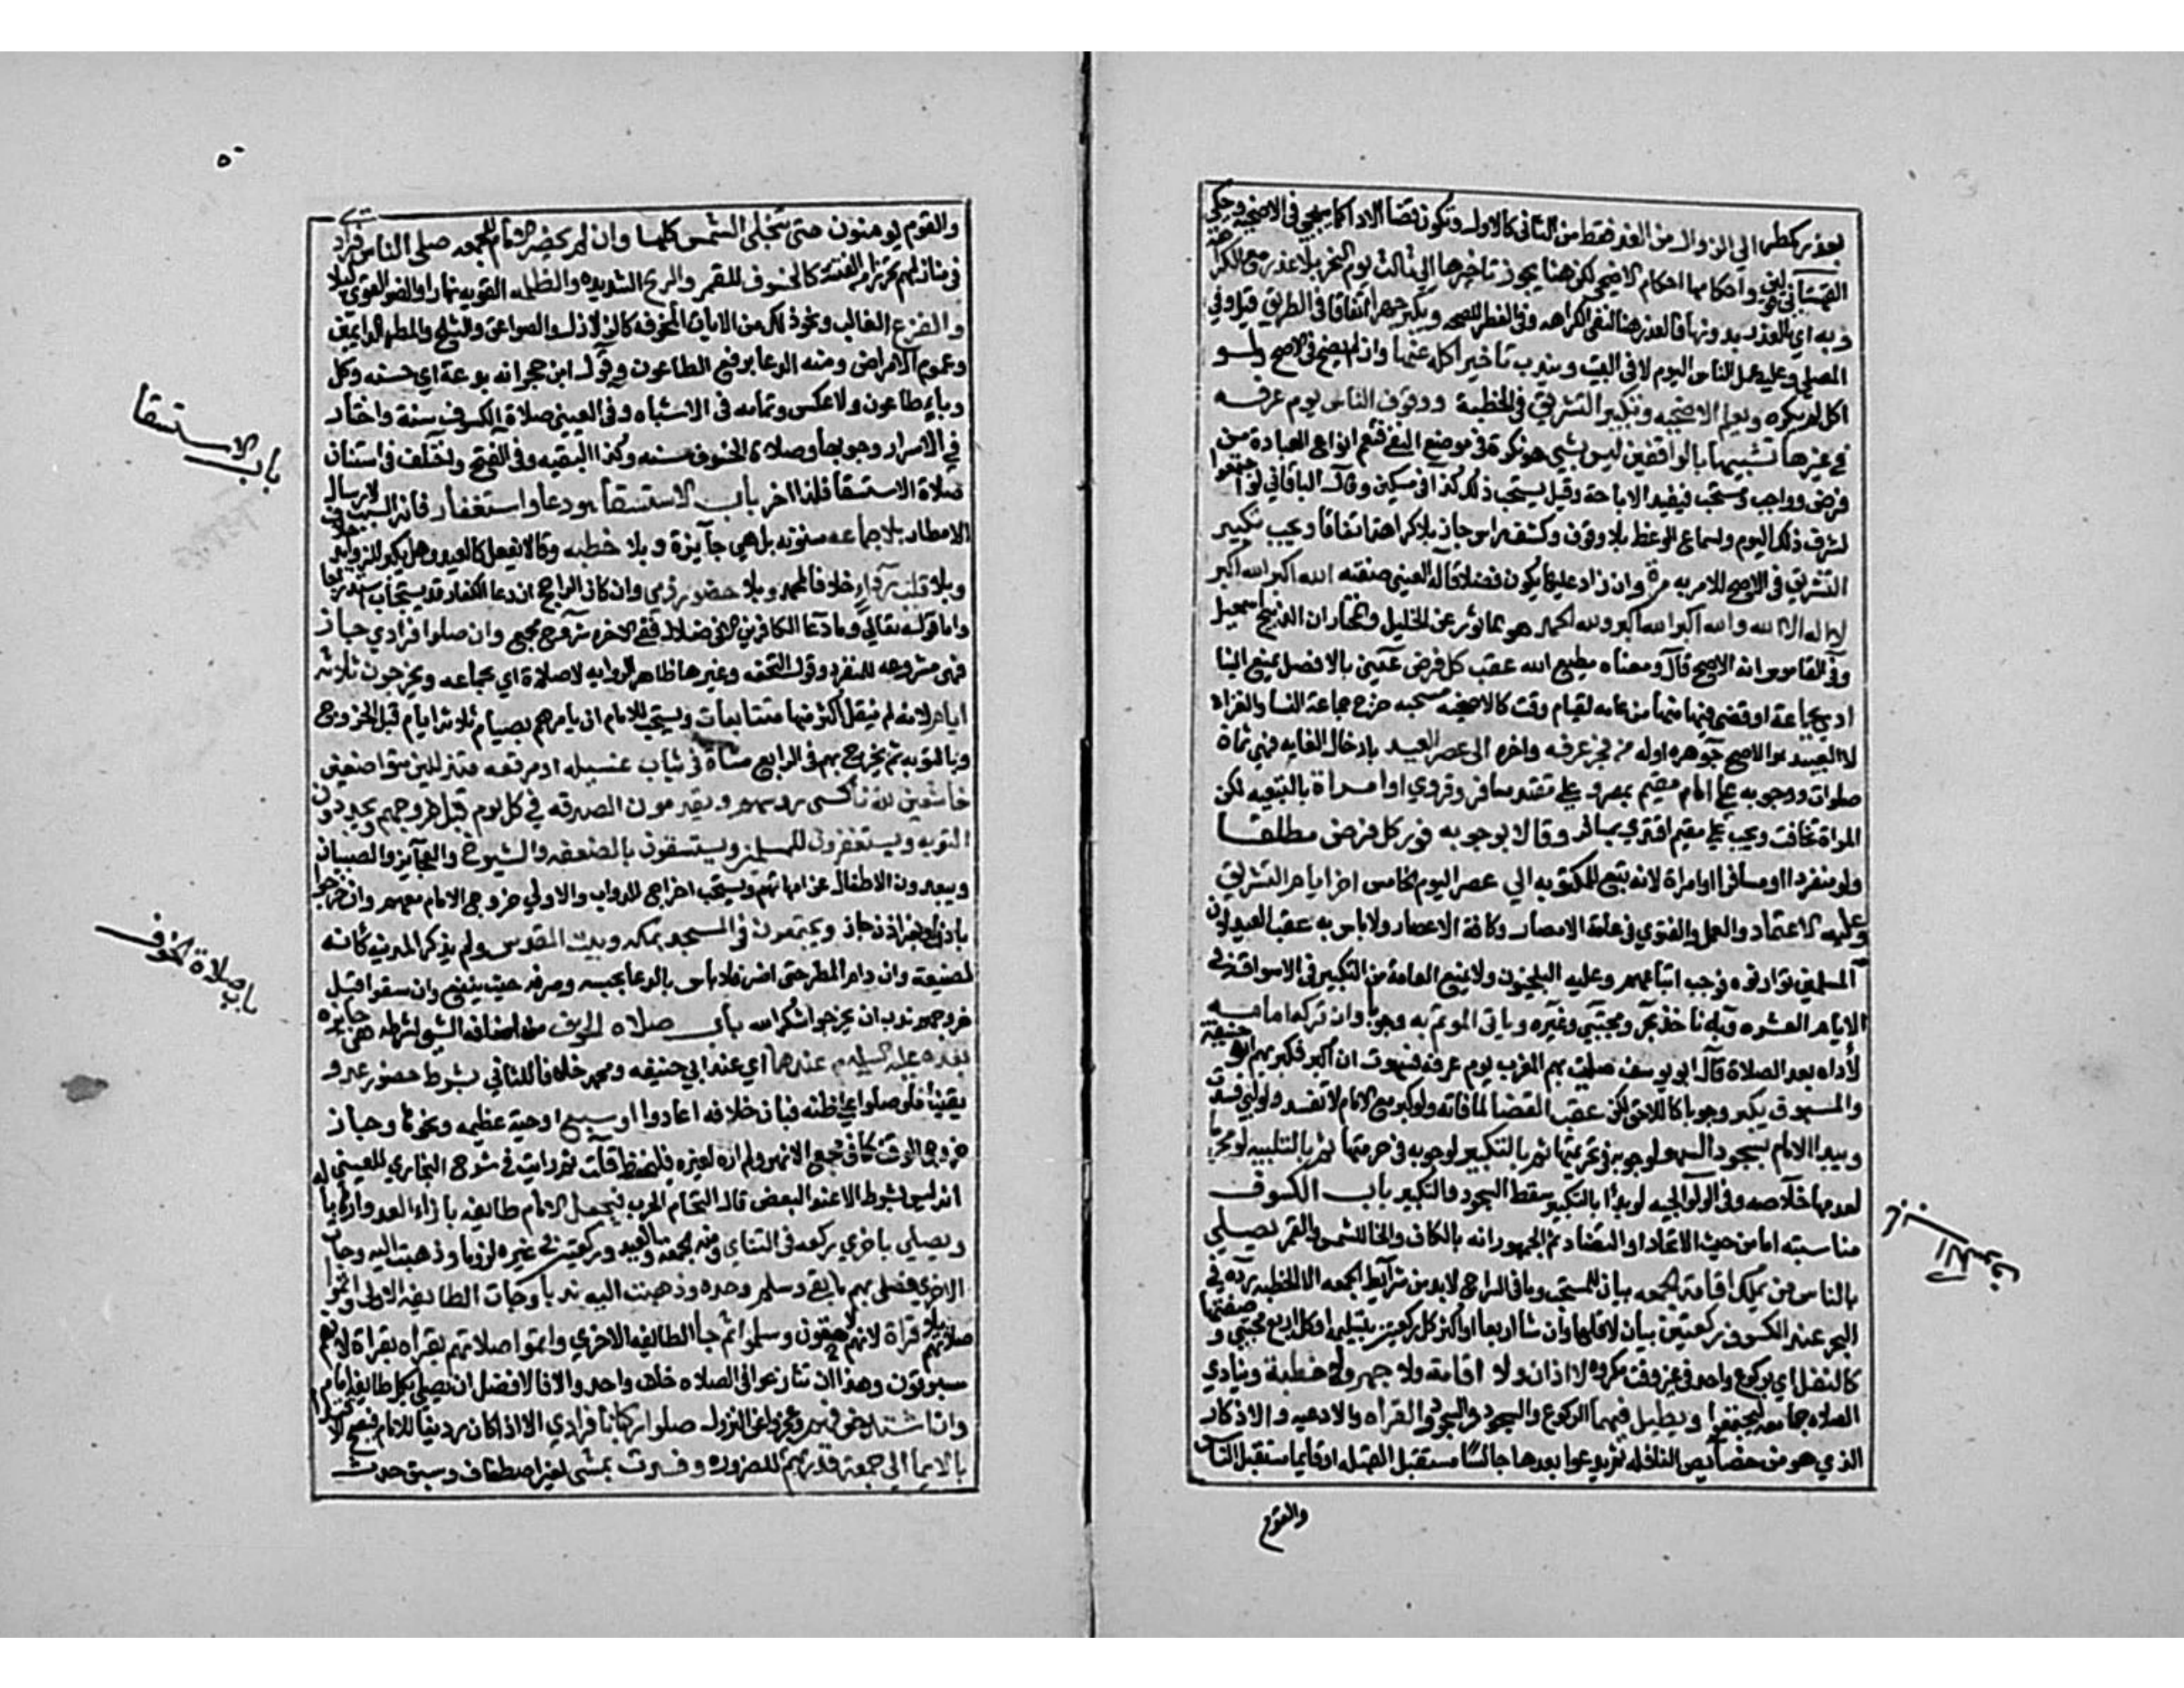 بعذر كمطر الي الزوال من الغد فقط من الثاني كالاول وتكون قضا لا ادا كما سيجي في الاضحيه وحكي
القهستاني قولين واحكامها احكام الاضحي لكن هنا يجوز تاخيرها الي ثالث يوم النحر بلا عذر مع الكراهة
وبه اي بالعذر بدونها فالعذر هنا لنفي الكراهه وفي الفطر للصحه ويكبر جهرا اتفاقا في الطريق قيل وفي
المصلي وعليه عمل الناس اليوم لا في البيت ويندب تاخير اكله عنها وان لم يضح في الاصح ولو
اكل لم يكره ويعلم الاضحيه وتكبير التشريق في الخطبة ووقوف الناس يوم عرفه
في غيرها تشبيها بالواقفين ليس بشي هو نكرة في موضع النفي فتعم انواع العبادة من
فرض وواجب ومستحب فيفيد الاباحة وقيل يستحب ذلك كذا في مسكين وقال الباقاني لو اجتمعوا
لشرف ذلك اليوم ولسماع الوعظ بلا وقوف وكشف راس جاز بلا كراهة اتفاقا ويجب تكبير
التشريق في الاصح للامر به مرة وان زاد عليها يكون فضلا قاله العيني صفته الله اكبر الله اكبر
لا اله الا الله والله اكبر الله اكبر ولله الحمد هو الماثور عن الخليل والمختار ان الذبيح اسمعيل
وفي القاموس انه الاصح قال ومعناه مطيع الله عقب كل فرض عيني بلا فصل يمنع البنا
ادي بجماعة او قضي فيها منها من عامه لقيام وقته كالاضحيه مستحبه خرج جماعة النسا والغزاة
لا العبيد في الاصح جوهره اوله من فجر عرفه واخره الي عصر العيد بادخال الغايه فهي ثمان
صلوات ووجوبه علي امام مقيم بمصر وعلي مقتد مسافر وقروي او امراة بالتبعيه لكن
المراة تخافت ويجب علي مقيم اقتدي بمسافر وقالا بوجوبه فور كل فرض مطلقا
ولو منفردا او مسافرا او امراة لانه تبع للمكتوبه الي عصر اليوم الخامس اخر ايام التشريق
وعليه الاعتماد والعمل والفتوي في عامة الامصار وكافة الاعصار ولا باس به عقب العيد لان
المسلمين توارثوه فوجب اتباعهم وعليه البلخيون ولا يمنع العامة من التكبير في الاسواق في
الايام العشره وبه ناخذ بحر ومجتبي وغيره وياتي الموتم به وجوبا وان تركه امامه
لاداه بعد الصلاة قال ابو يوسف صليت بهم المغرب يوم عرفه فسهوت ان اكبر فكبر بهم ابو حنيفة
والمسبوق يكبر وجوبا كاللاحق لكن عقب القضا لما فاته ولو كبر مع الامام لا تفسد ولو لبي فسدت
ويبدا الامام بسجود السهو لوجوبه في تحريمتها ثم بالتكبير لوجوبه في حرمتها ثم بالتلبيه لو محرما
لعدمها خلاصه وفي الولوالجيه لو بدا بالتكبير سقط السجود والتكبير باب الكسوف
مناسبته اما من حيث الاتحاد او التضاد ثم الجمهور انه بالكاف والخا للشمس والقمر يصلي
بالناس من يملك اقامة الجمعه بيان للمستحب وما في السراج لابد من شرايط الجمعه الا الخطبه رده في
البحر عند الكسوف ركعتين بيان لاقلها وان شا اربعا او اكثر كل ركعتين بتسليمه او كل اربع مجتبي وصفتها
كالنفل اي بركوع واحد في غير وقت مكروه بلا اذان ولا اقامة ولا جهر ولا خطبة وينادي
الصلاه جامعه ليجتمعوا ويطيل فيهما الركوع والسجود والقراه والادعيه والاذكار
الذي هو من خصايص النافله ثم يدعوا بعدها جالسا مستقبل القبله او قايما مستقبل الناس
والقوم
باب الكسوف
والقوم يومنون حتي تنجلي الشمس كلها وان لم يحضر الامام للجمعه صلي الناس فرادي
في منازلهم تحرزا من الفتنة كالخسوف للقمر والريح الشديده والظلمه القويه نهارا والضو القوي ليلا
والفزع الغالب ونحو ذلك من الايات المخوفه كالزلازل والصواعق والثلج والمطر الدايمين
وعموم الامراض ومنه الدعا برفع الطاعون وقول ابن حجر انه بدعة اي حسنه وكل
وبا طاعون ولا عكس وتمامه في الاشباه وفي العيني صلاة الكسوف سنة واختار
في الاسرار وجوبها وصلاة الخسوف حسنه وكذا البقيه وفي الفتح واختلف في استنان
صلاة الاستسقا فلذا اخر باب الاستسقا هو دعا واستغفار فانه السبب لارسال
الامطار بلا جماعه مسنونه بل هي جايزة وبلا خطبه وقالا تفعل كالعيد وهل يكبر للزوايد خلاف
وبلا قلب رداء خلافا لمحمد وبلا حضور ذمي وان كان الراجح ان دعا الكفار قد يستجاب استدراجا
واما قوله تعالي وما دعا الكافرين الا في ضلال ففي الاخره شروح مجمع وان صلوا فرادي جاز
فهي مشروعه للمنفرد وقول التحفه وغيرها ظاهر الروايه لا صلاة اي بجماعه ويخرجون ثلاثة
ايام لانه لم ينقل اكثر منها متتابعات ويستحب للامام ان يامرهم بصيام ثلاثة ايام قبل الخروج
وبالتوبه ثم يخرج بهم في الرابع مشاة في ثياب غسيله او مرقعه متذللين متواضعين
خاشعين لله ناكسي روسهم ويقدمون الصدقه في كل يوم قبل خروجهم ويجددون
التوبه ويستغفرون للمسلمين ويستسقون بالضعفه والشيوخ والعجايز والصبيان
ويبعدون الاطفال عن امهاتهم ويستحب اخراج الدواب والاولي خروج الامام معهم وان خرجوا
باذنه او بغير اذنه جاز ويجتمعون في المسجد بمكه وبيت المقدس ولم يذكر المدينه كانه
لضيقه وان دام المطر حتي اضر فلا باس بالدعا بحبسه وصرفه حيث ينفع وان سقوا قبل
خروجهم ندب ان يخرجوا شكرا لله باب صلاه الخوف من اضافه الشي لشرطه هي جايزه
بعده عليه السلام عندهما اي عند ابي حنيفه ومحمد خلافا للثاني بشرط حضور عدو
يقينا فلو صلوا علي ظنه فبان خلافه اعادوا او سبع او حية عظيمه ونحوها وحان
خروج الوقت كما في مجمع الانهر ولم اره لغيره فليحفظ قلت ثم رايت في شرح البخاري للعيني
انه ليس بشرط الا عند البعض قال التحام الحرب فيجعل الامام طايفه بازاء العدو ارهابا له
ويصلي باخري ركعه في الثنائي ومنه الجمعه والعيد وركعتين في غيره لزوما وذهبت اليه وجات
الاخري فصلي بهم ما بقي وسلم وحده وذهبت اليه ندبا وجات الطايفه الاولي واتموا
صلاتهم بلا قراة لانهم لاحقون وسلموا ثم جا الطايفه الاخري واتموا صلاتهم بقراه لانهم
مسبوقون وهذا ان تنازعوا في الصلاه خلف واحد والا فالافضل ان يصلي بكل طايفه امام
وان اشتد خوفهم وعجزوا عن النزول صلوا ركبانا فرادي الا اذا كان رديفا للامام فيصح الاقتدا
بالايما الي جهة قدرتهم للضرورة وفسدت بمشي لغير اصطفاف وسبق حدث
باب الاستسقا
باب صلاة الخوف